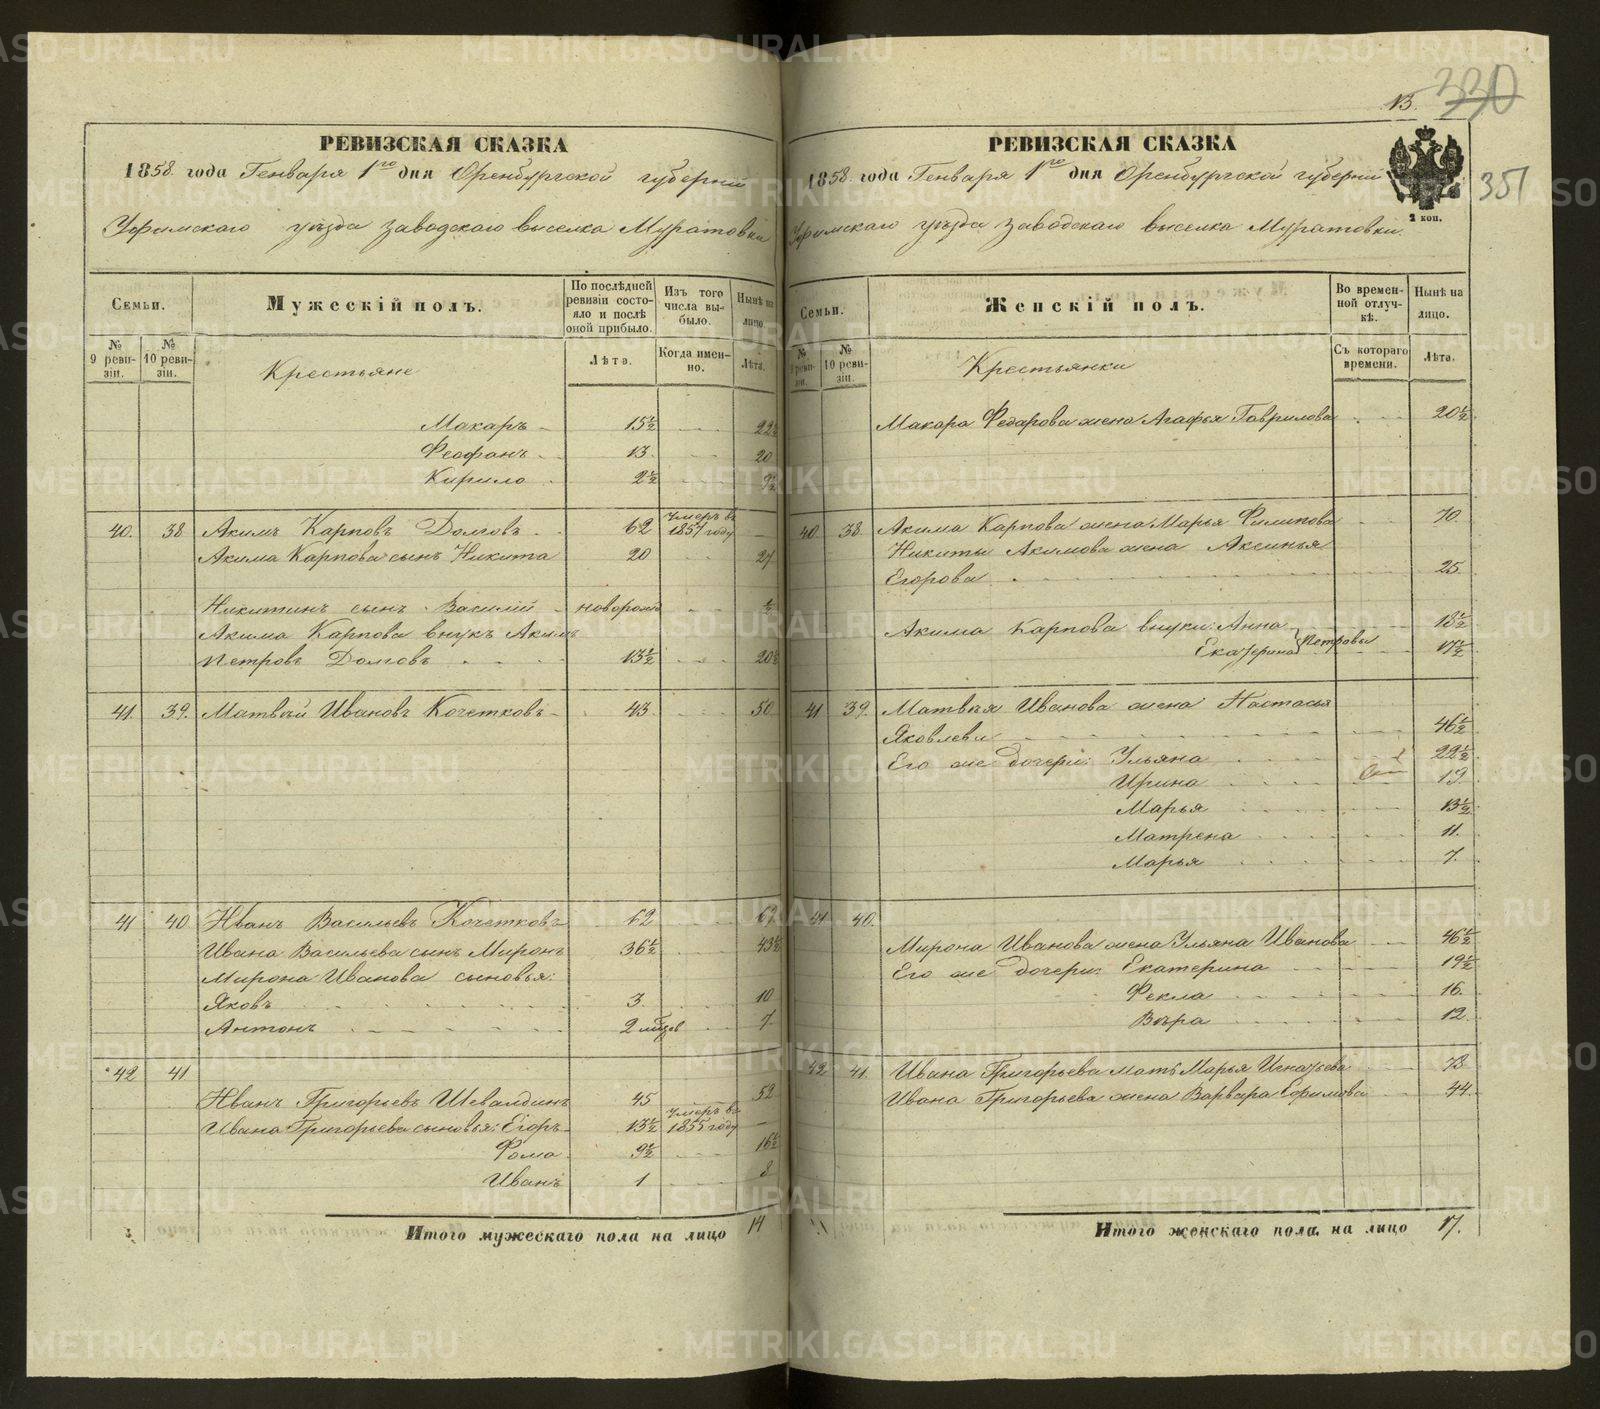 13. 330
РЕВИЗСКАЯ СКАЗКА
1858 года Генваря 1го дня Оренбургской губернии
Уфимскаго уезда заводскаго выселка Муратовки
Семьи.
Мужескій полъ.
По последней ревизіи состояло и после оной прибыло.
Изъ того числа выбыло.
Ныне на лицо.
№ 9 ревизіи.
№ 10 ревизіи.
Крестьяне
Лета.
Когда именно.
Лета.
Макаръ 15½ 22½
Феофанъ 13 20
Кирило 2½ 9½
40. 38 Акимъ Карповъ Долговъ 62 Умеръ въ 1857 году
Акима Карпова сынъ Никита 20 27
Никитинъ сынъ Василій новорожд ½
Акима Карпова внукъ Акимъ
Петровъ Долговъ 13½ 20½
41 39. Матвей Ивановъ Кочетковъ 43 50
41 40 Иванъ Васильевъ Кочетковъ 62 69
Ивана Васильева сынъ Миронъ 36½ 43½
Мирона Иванова сыновья:
Яковъ 3 10
Антонъ 2 мцов 7
42 41
Иванъ Григорьевъ Шевалдинъ 45 52
Ивана Григорьева сыновья: Егоръ 13½ Умеръ въ 1855 году
Фома 9½ 16½
Иванъ 1 8
Итого мужескаго пола на лицо 14
РЕВИЗСКАЯ СКАЗКА
1858 года Генваря 1го дня Оренбургской губерніи
351
2 коп.
Уфимскаго уезда заводскаго выселка Муратовки.
Семьи.
Женскій полъ.
Во временной отлучке.
Ныне на лицо.
№ 9 ревизіи.
№ 10 ревизіи.
Крестьянки
Съ котораго времени.
Лета.
Макара Федарова жена Агафья Гаврилова 20½
40 38. Акима Карпова жена Марья Филипова 70.
Никиты Акимова жена Аксинья
Егорова 25
Акима Карпова внуки: Анна 18½
Екатерина Петровы 17½
41 39. Матвея Иванова жена Настасья
Яковлева 46½
Его же дочери: Ульяна 22½
Ирина 19
Марья 13½
Матрена 11.
Марья 7.
41 40.
Мирона Иванова жена Ульяна Иванова 46½
Его же дочери: Екатерина 19½
Фекла 16.
Вера 12.
42 41. Ивана Григорьева мать Марья Игнатьева 73
Ивана Григорьева жена Варвара Ефимова 44.
Итого женскаго пола. на лицо 17.
METRIKI.GASO-URAL.RU